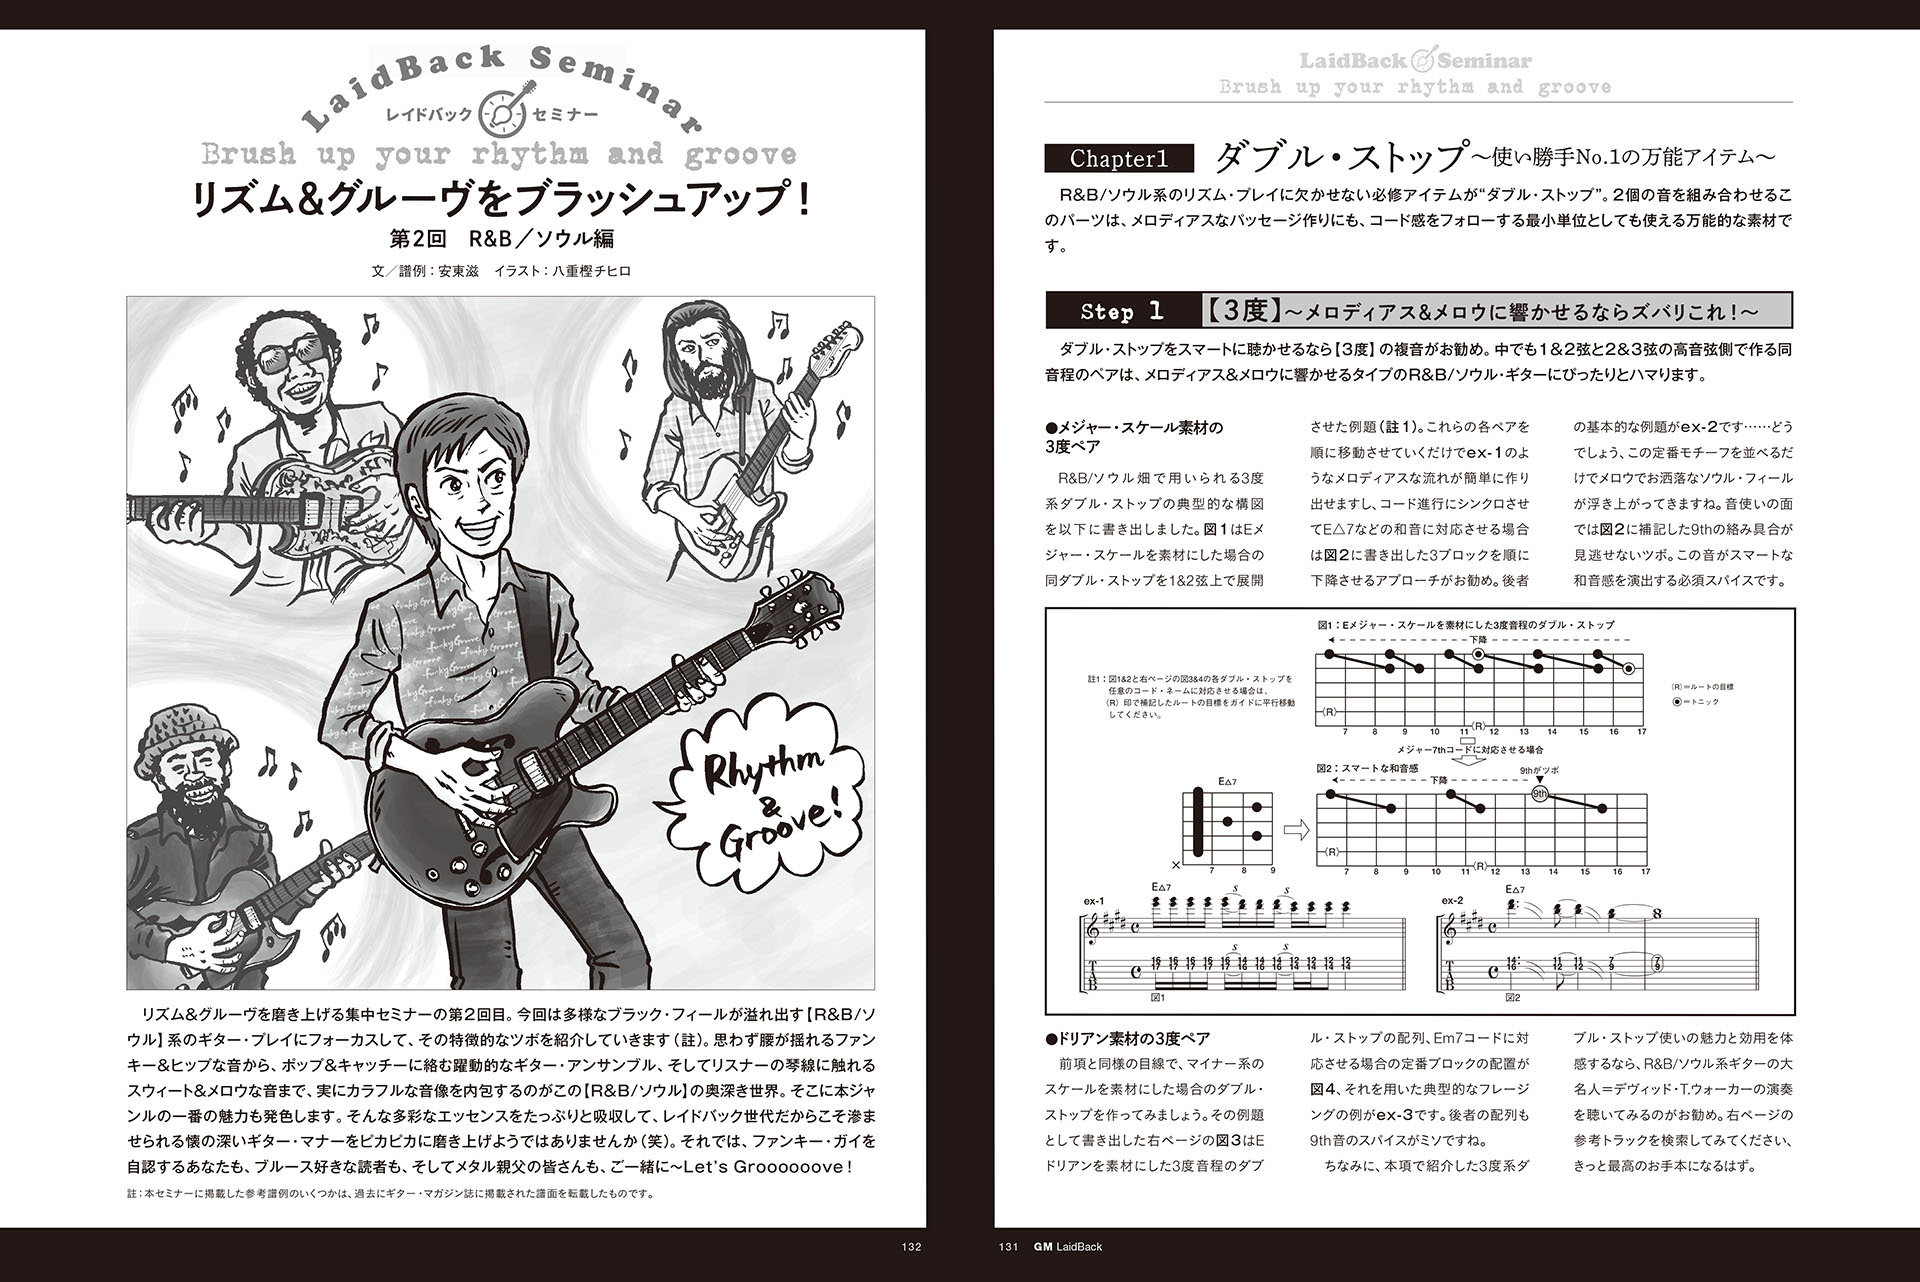 LaidBack Seminar
レイドバック セミナー
Brush up your rhythm and groove
リズム&グルーヴをブラッシュアップ!
第2回 R&B/ソウル編
文/譜例:安東滋 イラスト:八重樫チヒロ
Rhythm
&
Groove!
リズム&グルーヴを磨き上げる集中セミナーの第2回目。今回は多様なブラック・フィールが溢れ出す【R&B/ソ
ウル】系のギター・プレイにフォーカスして、その特徴的なツボを紹介していきます(註)。思わず腰が揺れるファン
キー&ヒップな音から、ポップ&キャッチーに絡む躍動的なギター・アンサンブル、そしてリスナーの琴線に触れる
スウィート&メロウな音まで、実にカラフルな音像を内包するのがこの【R&B/ソウル】の奥深き世界。そこに本ジャ
ンルの一番の魅力も発色します。そんな多彩なエッセンスをたっぷりと吸収して、レイドバック世代だからこそ滲ま
せられる懐の深いギター・マナーをピカピカに磨き上げようではありませんか(笑)。それでは、ファンキー・ガイを
自認するあなたも、ブルース好きな読者も、そしてメタル親父の皆さんも、ご一緒に〜Let's Grooooooove!
註:本セミナーに掲載した参考譜例のいくつかは、過去にギター・マガジン誌に掲載された譜面を転載したものです。
132
LaidBack Seminar
Brush up your rhythm and groove
Chapter1 ダブル・ストップ〜使い勝手No.1の万能アイテム〜
R&B/ソウル系のリズム・プレイに欠かせない必修アイテムが“ダブル・ストップ”。2個の音を組み合わせるこ
のパーツは、メロディアスなパッセージ作りにも、コード感をフォローする最小単位としても使える万能的な素材で
す。
Step 1 【3度】〜メロディアス&メロウに響かせるならズバリこれ!〜
ダブル・ストップをスマートに聴かせるなら【3度】の複音がお勧め。中でも1&2弦と2&3弦の高音弦側で作る同
音程のペアは、メロディアス&メロウに響かせるタイプのR&B/ソウル・ギターにぴったりとハマります。
●メジャー・スケール素材の
3度ペア
R&B/ソウル畑で用いられる3度
系ダブル・ストップの典型的な構図
を以下に書き出しました。図1はEメ
ジャー・スケールを素材にした場合の
同ダブル・ストップを1&2弦上で展開
させた例題(註1)。これらの各ペアを
順に移動させていくだけでex-1のよ
うなメロディアスな流れが簡単に作り
出せますし、コード進行にシンクロさせ
てE△7などの和音に対応させる場合
は図2に書き出した3ブロックを順に
下降させるアプローチがお勧め。後者
の基本的な例題がex-2です……どう
でしょう、この定番モチーフを並べるだ
けでメロウでお洒落なソウル・フィール
が浮き上がってきますね。音使いの面
では図2に補記した9thの絡み具合が
見逃せないツボ。この音がスマートな
和音感を演出する必須スパイスです。
図1:Eメジャー・スケールを素材にした3度音程のダブル・ストップ
下降
註1:図1&2と右ページの図3&4の各ダブル・ストップを
任意のコード・ネームに対応させる場合は、
(R)印で補記したルートの目標をガイドに平行移動
してください。
(R)
(R)
7 8 9 10 11 12 13 14 15 16 17
(R)=ルートの目標
=トニック
メジャー7thコードに対応させる場合
図2:スマートな和音感
下降
9thがツボ
9th
E△7
×
7 8 9
(R)
(R)
7 8 9 10 11 12 13 14 15 16 17
ex-1
E△7
S S
S S
T
A
B
16 16 16 16 16 14 14 14 12 12 12 12
17 17 17 17 17 16 16 16 14 14 14 14
図1
ex-2
E△7
8
T
A
B
14 11 11 7 7
16 12 12 9 9
図2
●ドリアン素材の3度ペア
前項と同様の目線で、マイナー系の
スケールを素材にした場合のダブル・
ストップを作ってみましょう。その例題
として書き出した右ページの図3はE
ドリアンを素材にした3度音程のダブ
ル・ストップの配列、Em7コードに対
応させる場合の定番ブロックの配置が
図4、それを用いた典型的なフレージ
ングの例がex-3です。後者の配列も
9th音のスパイスがミソですね。
ちなみに、本項で紹介した3度系ダ
ブル・ストップ使いの魅力と効用を体
感するなら、R&B/ソウル系ギターの大
名人=デヴィッド・T.ウォーカーの演奏
を聴いてみるのがお勧め。右ページの
参考トラックを検索してみてください、
きっと最高のお手本になるはず。
131 GM LaidBack